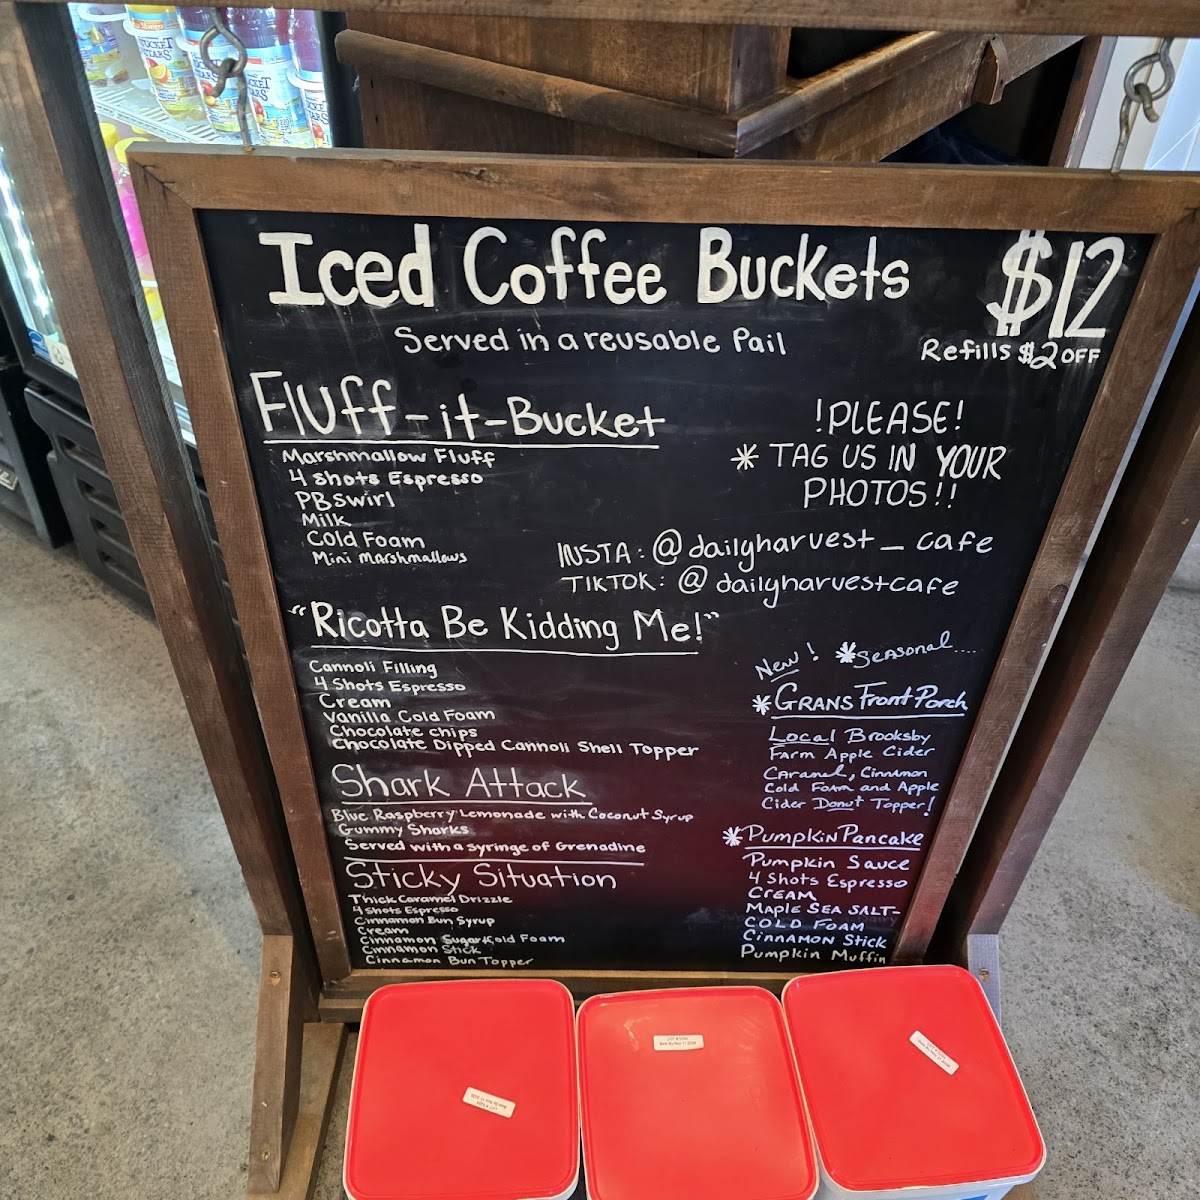 Iced Coffee Buckets $12
Served in a reusable Pail
Refills $2 OFF
Fluff-it-Bucket
Marshmallow Fluff
4 shots Espresso
PB Swirl
Milk
Cold Foam
Mini Marshmallows
!PLEASE!
* TAG US IN YOUR
PHOTOS!!
INSTA: @dailyharvest_cafe
TIKTOK: @dailyharvestcafe
"Ricotta Be Kidding Me!"
Cannoli Filling
4 Shots Espresso
Cream
Vanilla Cold Foam
Chocolate chips
Chocolate Dipped Cannoli Shell Topper
Shark Attack
Blue Raspberry Lemonade with Coconut Syrup
Gummy Sharks
Served with a syringe of Grenadine
Sticky Situation
Thick Caramel Drizzle
4 Shots Espresso
Cinnamon Bun Syrup
Cream
Cinnamon Sugar Cold Foam
Cinnamon Stick
Cinnamon Bun Topper
New! *Seasonal....
*GRANS Front Porch
Local Brooksby
Farm Apple Cider
Caramel, Cinnamon
Cold Foam and Apple
Cider Donut Topper!
*Pumpkin Pancake
Pumpkin Sauce
4 Shots Espresso
CREAM
MAPLE SEA SALT-
COLD FOAM
CINNAMON STICK
Pumpkin Muffin